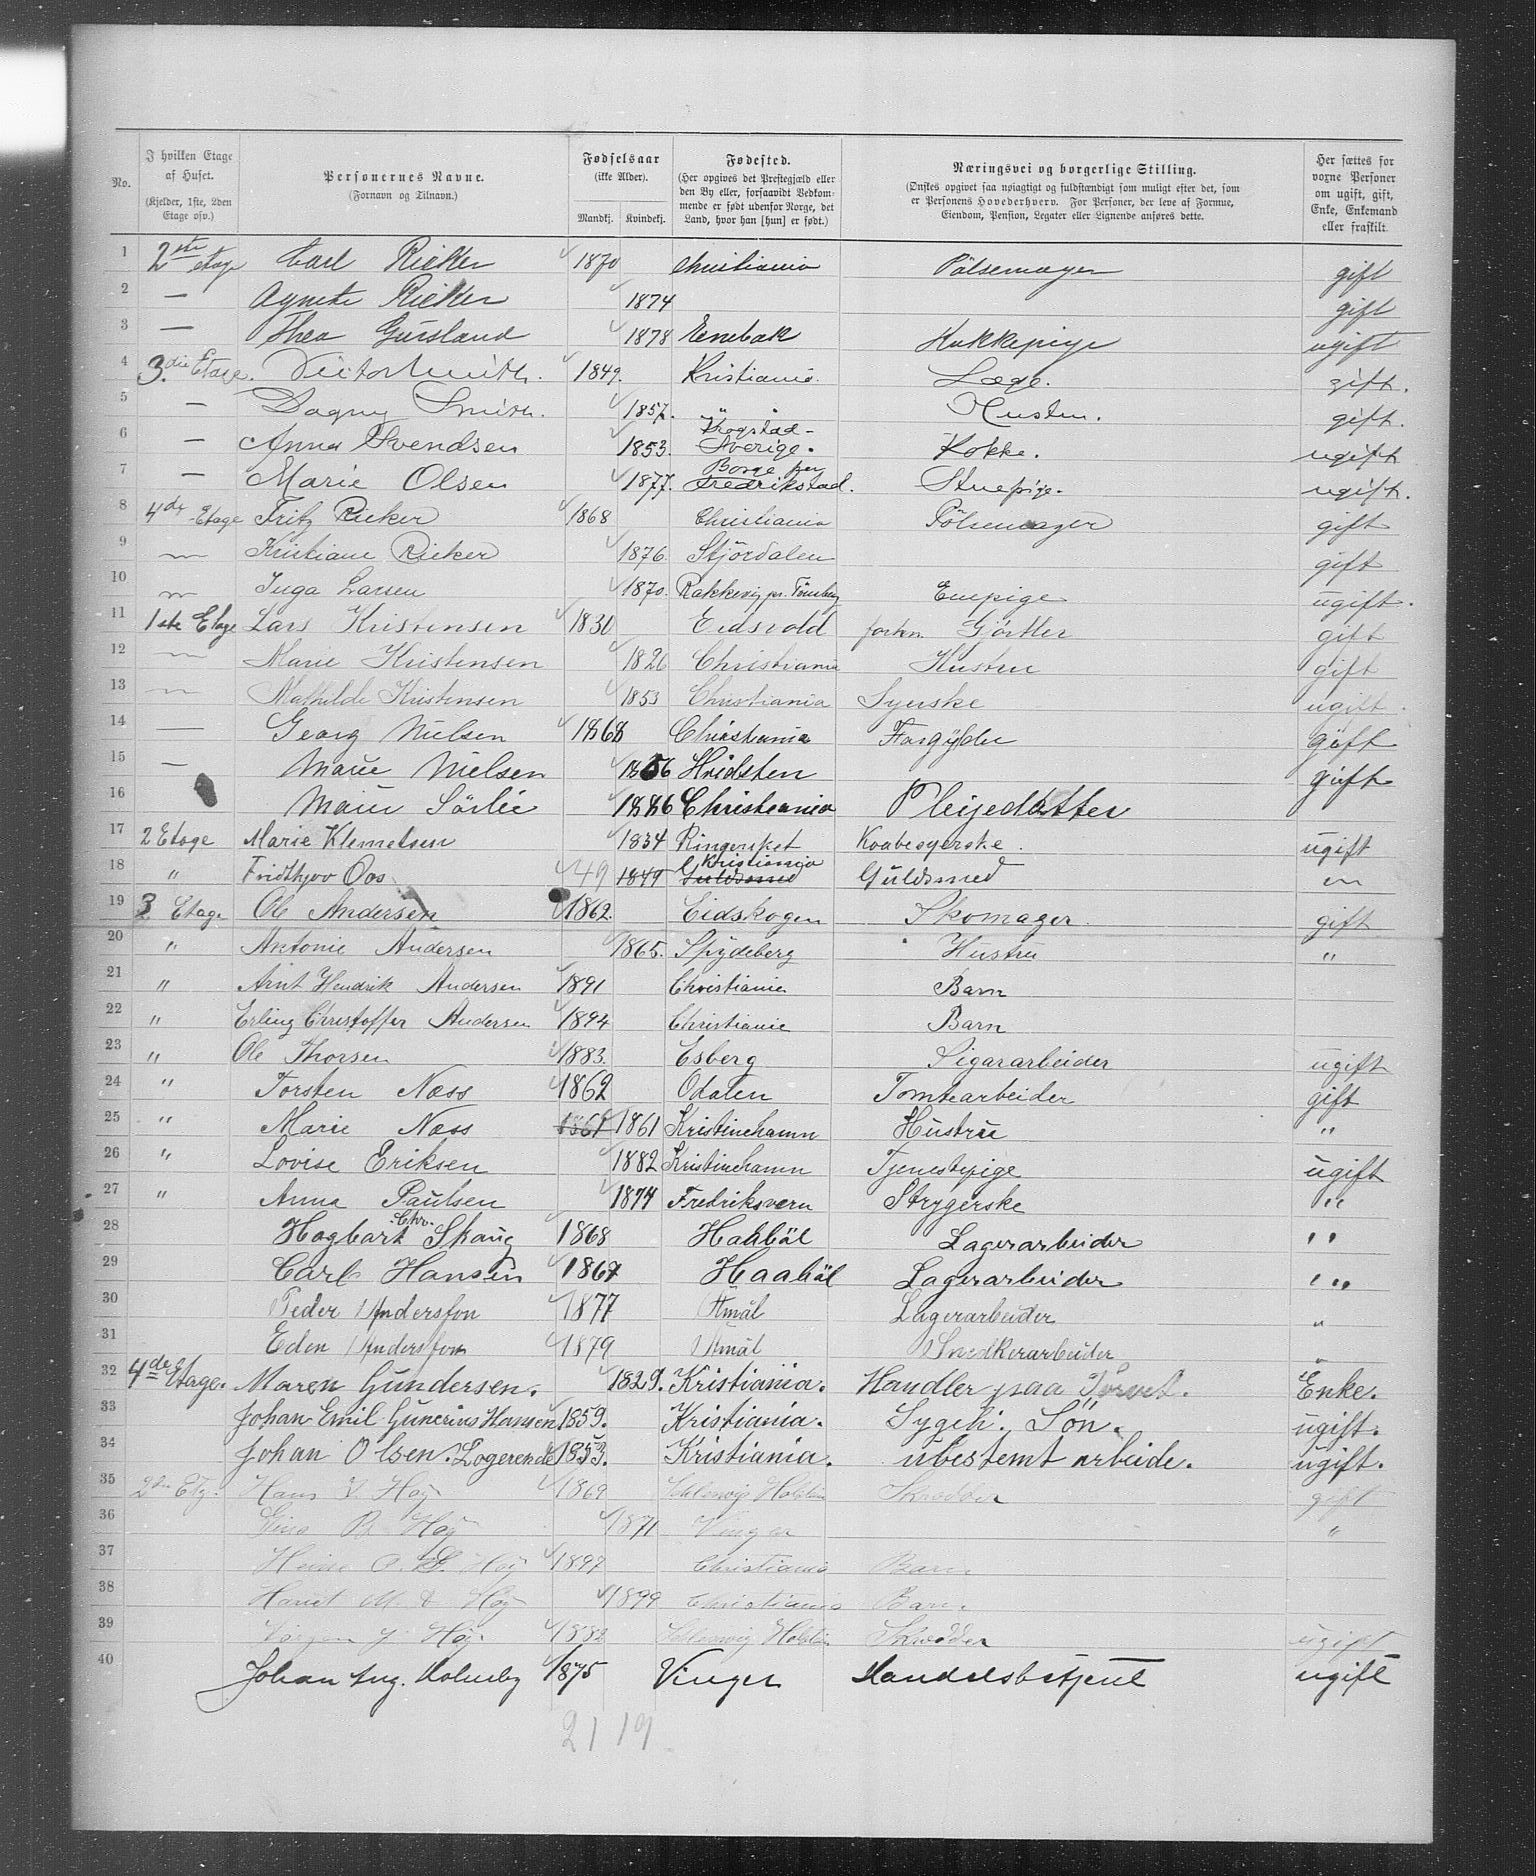 No. | I hvilken Etage af Huset. (Kjelder, 1ste, 2den Etage osv.) | Personernes Navne. (Fornavn og Tilnavn.) | Fødselsaar (ikke Alder). Mandkj. Kvindekj. | Fødested. (Her opgives det Prestegjæld eller den By eller, forsaavidt Vedkommende er født udenfor Norge, det Land, hvor han [hun] er født.) | Næringsvei og borgerlige Stilling. (Ønskes opgivet saa nøiagtigt og fuldstændigt som muligt efter det, som er Personens Hovederhverv. For Personer, der leve af Formue, Eiendom, Pension, Legater eller Lignende anføres dette. | Her sættes for voxne Personer om ugift, gift, Enke, Enkemand eller fraskilt.
1 2den etage Carl Rieker 1870 Christiania Pölsemager gift
2 — Agnete Rieker 1874 gift
3 — Thea 1878 Enebak Kokkepige ugift
4 3die Etage. Victor Smith. 1849. Kristiania. Læge. gift.
5 — Dagny Smith. 1857. " Hustru. gift.
6 — Anna Svendsen 1853. Skogstad - Sverige. Kokke. ugift
7 — Marie Olsen 1877. Borge per Fredrikstad. Stuepige. ugift.
8 4de Etage Fritz Rieker 1868 Christiania Pölsemager gift
9 — Kristiane Rieker 1876. Stjördalen gift
10 — Inga Larsen 1870. Rakkevig pr. Tönsberg Enepige ugift.
11 1ste Etage Lars Kristensen 1830 Eidsvold forhen Gjörtler gift
12 — Marie Kristensen 1826 Christiania Hustru gift
13 — Mathilde Kristensen 1853 Christiania Syerske ugift.
14 — Georg Nielsen 1868 Christiania Forgylder gift
15 — Marie Nielsen 1856 Hvidsten gift
16 Marie Sörlie 1886 Christiania Pleijedatter
17 2 Etage Marie Klemetsen 1834 Ringeriket Kaabesyerske. ugift
18 " Fridthjov Oos 49 1849 Kristiania Guldsmed Guldsmed
19 3 Etage Ole Andersen 1862. Eidskogen Skomager gift
20 " Antonie Andersen 1865. Spydeberg Hustru "
21 " Arnt Hendrik Andersen 1891 Christiania Barn
22 " Erling Christoffer Andersen 1894 Christiania Barn
23 " Ole Thorsen 1883. Esberg Sigararbeider ugift
24 " Torsten Næss 1862 Odalen Tomtearbeider gift
25 " Marie Næss 1861 1861 Kristinehamn Hustru "
26 " Lovise Eriksen 1882 Kristinehamn Tjenestepige ugift
27 " Anna Paulsen 1874 Fredriksvern Strygerske "
28 Hagbart Chr. Skaug 1868 Haabäl Lagerarbeider "
29 Carl Hansen 1867 Haabäl Lagerarbeider "
30 Peder Andersson 1877 Åmål Lagerarbeider "
31 Eden Andersson 1879 Åmål Snedkerarbeider "
32 4de Etage. Maren Gundersen. 1829. Kristiania. Handler paa Torvet. Enke.
33 Johan Emil Gunerius Hansen 1859. Kristiania. Sygeli. Sön. ugift.
34 Johan Olsen. Logerende 1853. Kristiania. ubestemt arbeide. ugift.
35 2den Etg. Hans Höy 1869 Schlesvig Holstein Skrædder gift
36 Höy 1871 Vinger "
37 Höy 1897 Christiania Barn.
38 Harriet M. Höy 1899 Christiania Barn.
39 Jörgen J. Höy 1882 Schlesvig Holstein Skrædder ugift
40 Johan Aug. Holmby 1875 Vinger Handelsbetjent ugift
21 19